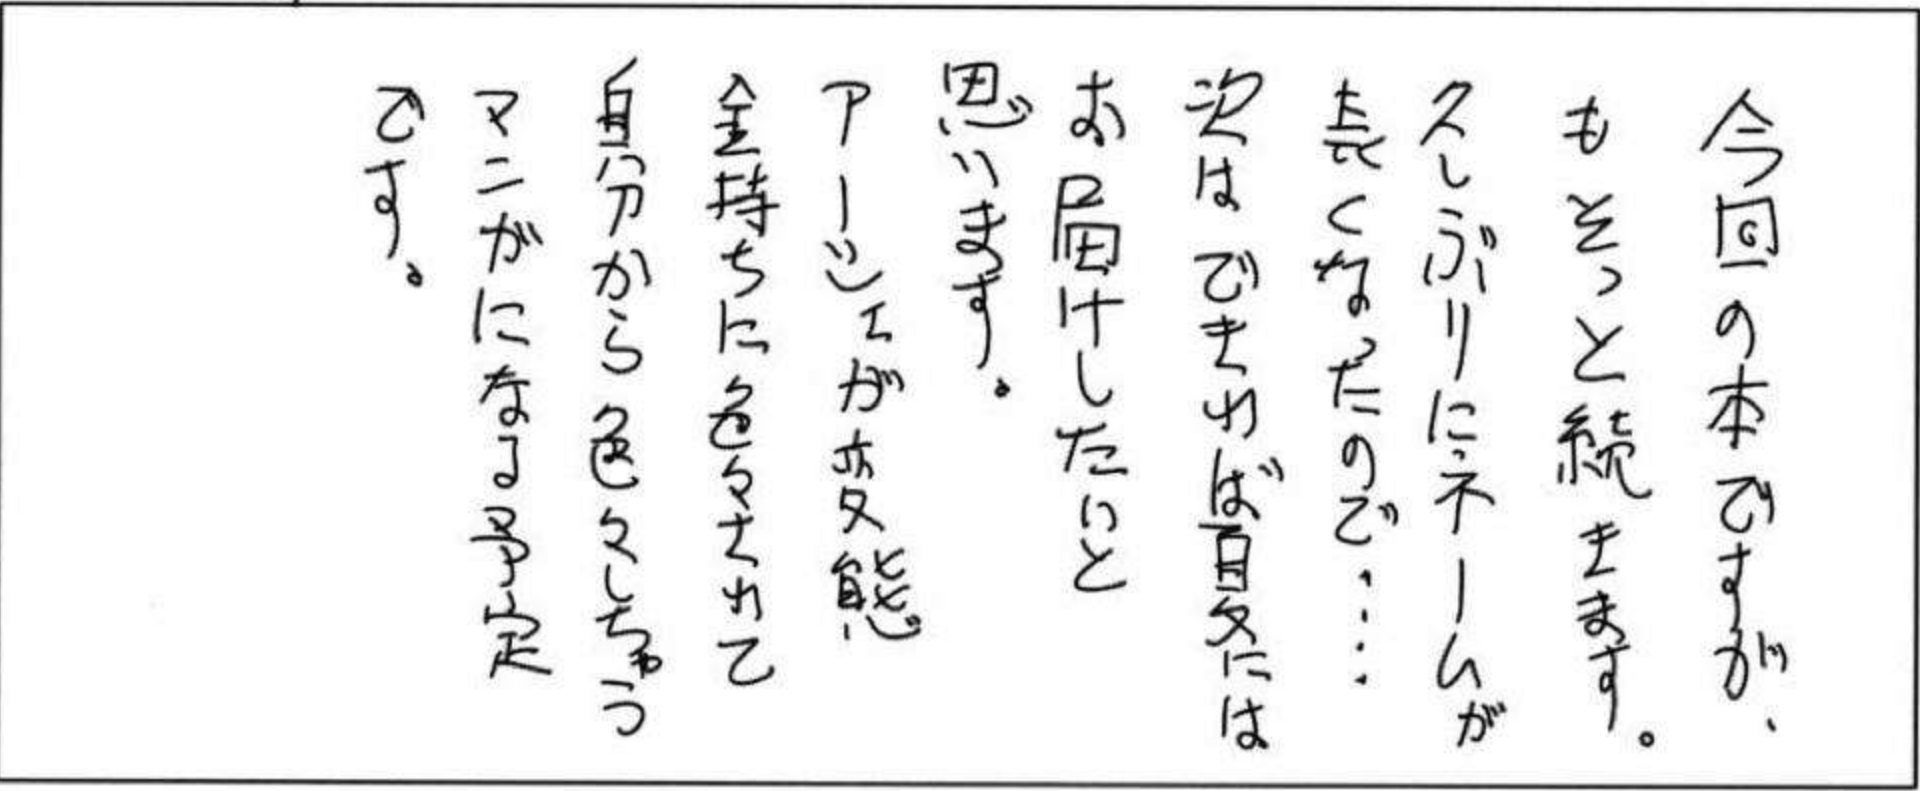 今回の本ですが、
もそっと続きます。
久しぶりにネームが
長くなったので……
次はできれば夏には
お届けしたいと
思います。
アーシェが変態
金持ちに色々されて
自分から色々しちゃう
マンガになる予定
です。